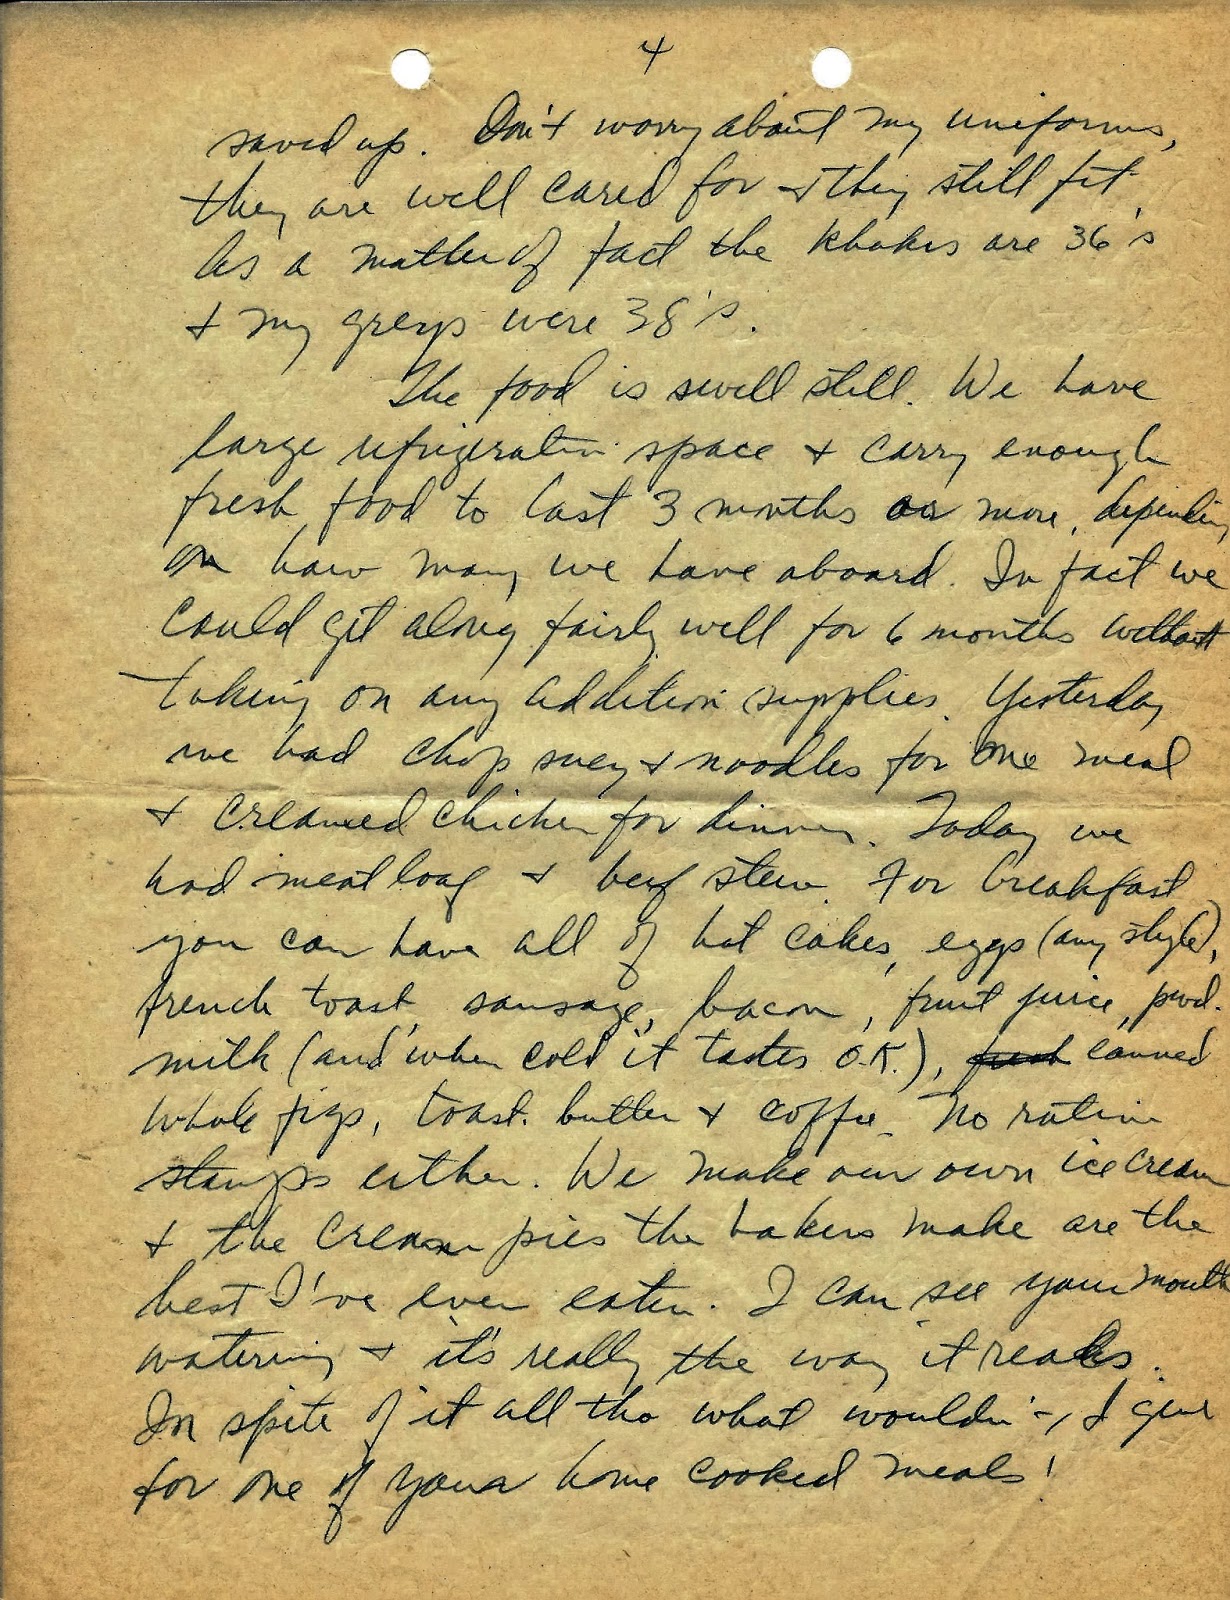 4
saved up. Don't worry about my uniforms,
they are well cared for & they still fit.
As a matter of fact the khakis are 36's
& my greys were 38's.
The food is swell still. We have
large refrigeration space & carry enough
fresh food to last 3 months or more, depending
on how many we have aboard. In fact we
could get along fairly well for 6 months without
taking on any addition supplies. Yesterday
we had chop suey & noodles for one meal
& creamed chicken for dinner. Today we
had meat loaf & beef stew. For breakfast
you can have all of hot cakes, eggs (any style),
french toast, sausage, bacon, fruit juice, pwd.
milk (and when cold it tastes O.K.), fresh canned
whole figs, toast, butter & coffee. No ration
stamps either. We make our own ice cream
& the cream pies the bakers make are the
best I've ever eaten. I can see your mouth
watering & it's really the way it reads.
In spite of it all tho what wouldn't I give
for one of your home cooked meals!